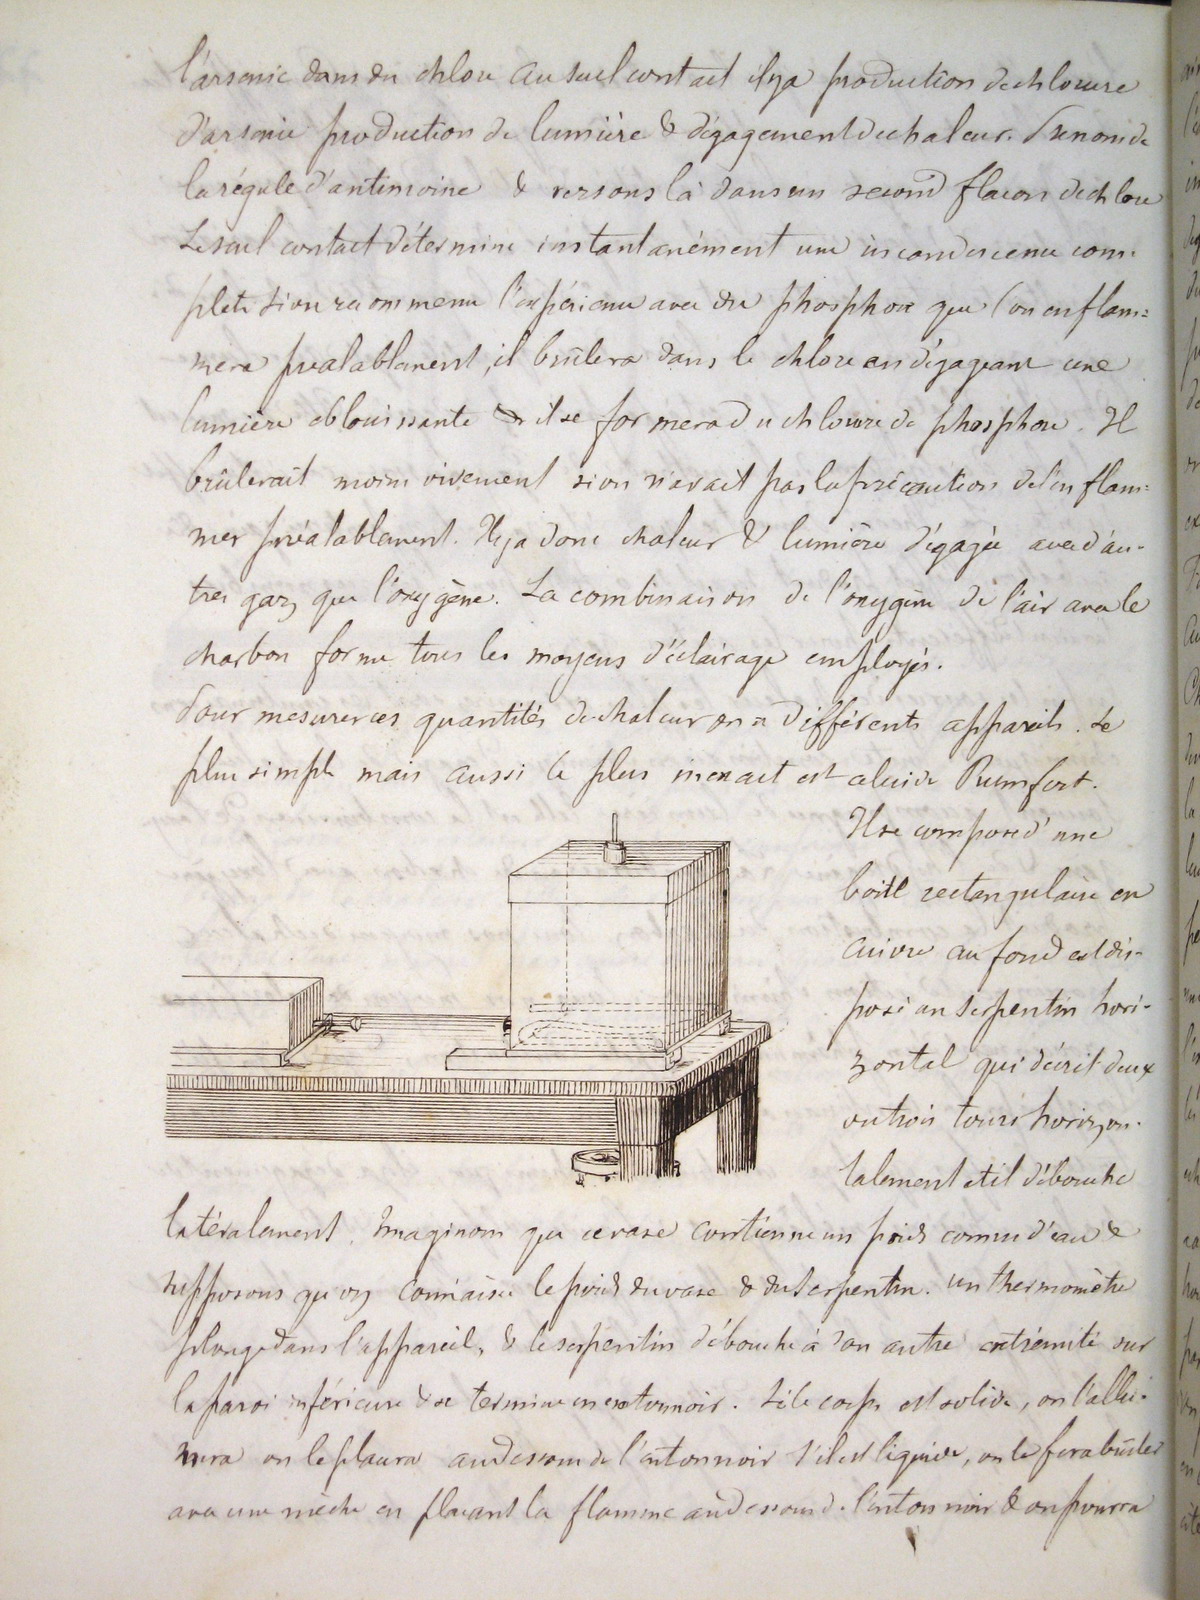 l'arsenic dans du chlore au seul contact il y a production de chlorure
d'arsenic production de lumière & dégagement de chaleur. Prenons de
la régule d'antimoine & versons là dans un second flacon de chlore
Le seul contact détermine instantanément une incandescence com-
plète si on recommence l'expérience avec du phosphore que l'on enflam=
mera préalablement, il brûlera dans le chlore en dégageant une
lumière eblouissante & il se formera du chlorure de phosphore. Il
brûlerait moins vivement si on n'avait pas la précaution de l'enflam=
mer préalablement. Il y a donc chaleur & lumière dégagée avec d'au-
tres gaz que l'oxygène. La combinaison de l'oxygène de l'air avec le
charbon forme tous les moyens d'éclairage employés.
Pour mesurer ces quantités de chaleur on a différents appareils. Le
plus simple mais aussi le plus inexact est celui de Rumfort.
Il se compose d'une
boite rectangulaire en
cuivre au fond est dis-
posé un serpentin hori-
zontal qui décrit deux
ou trois tours horizon-
talement et il débouche
latéralement. Imaginons que ce vase contienne un poids connu d'eau &
supposons qu'on connaisse le poids du vase & du serpentin. Un thermomètre
plonge dans l'appareil, & le serpentin débouche à son autre extrémité sur
la paroi inférieure & se termine en entonnoir. Si le corps est solide, on l'allu-
mera on le placera au dessous de l'entonnoir s'il est liquide, on le fera brûler
avec une mèche en plaçant la flamme au dessous de l'entonnoir & on pourra